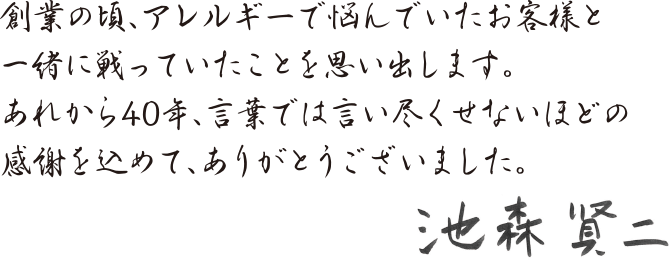 創業の頃、アレルギーで悩んでいたお客様と
一緒に戦っていたことを思い出します。
あれから40年、言葉では言い尽くせないほどの
感謝を込めて、ありがとうございました。
池森 賢二